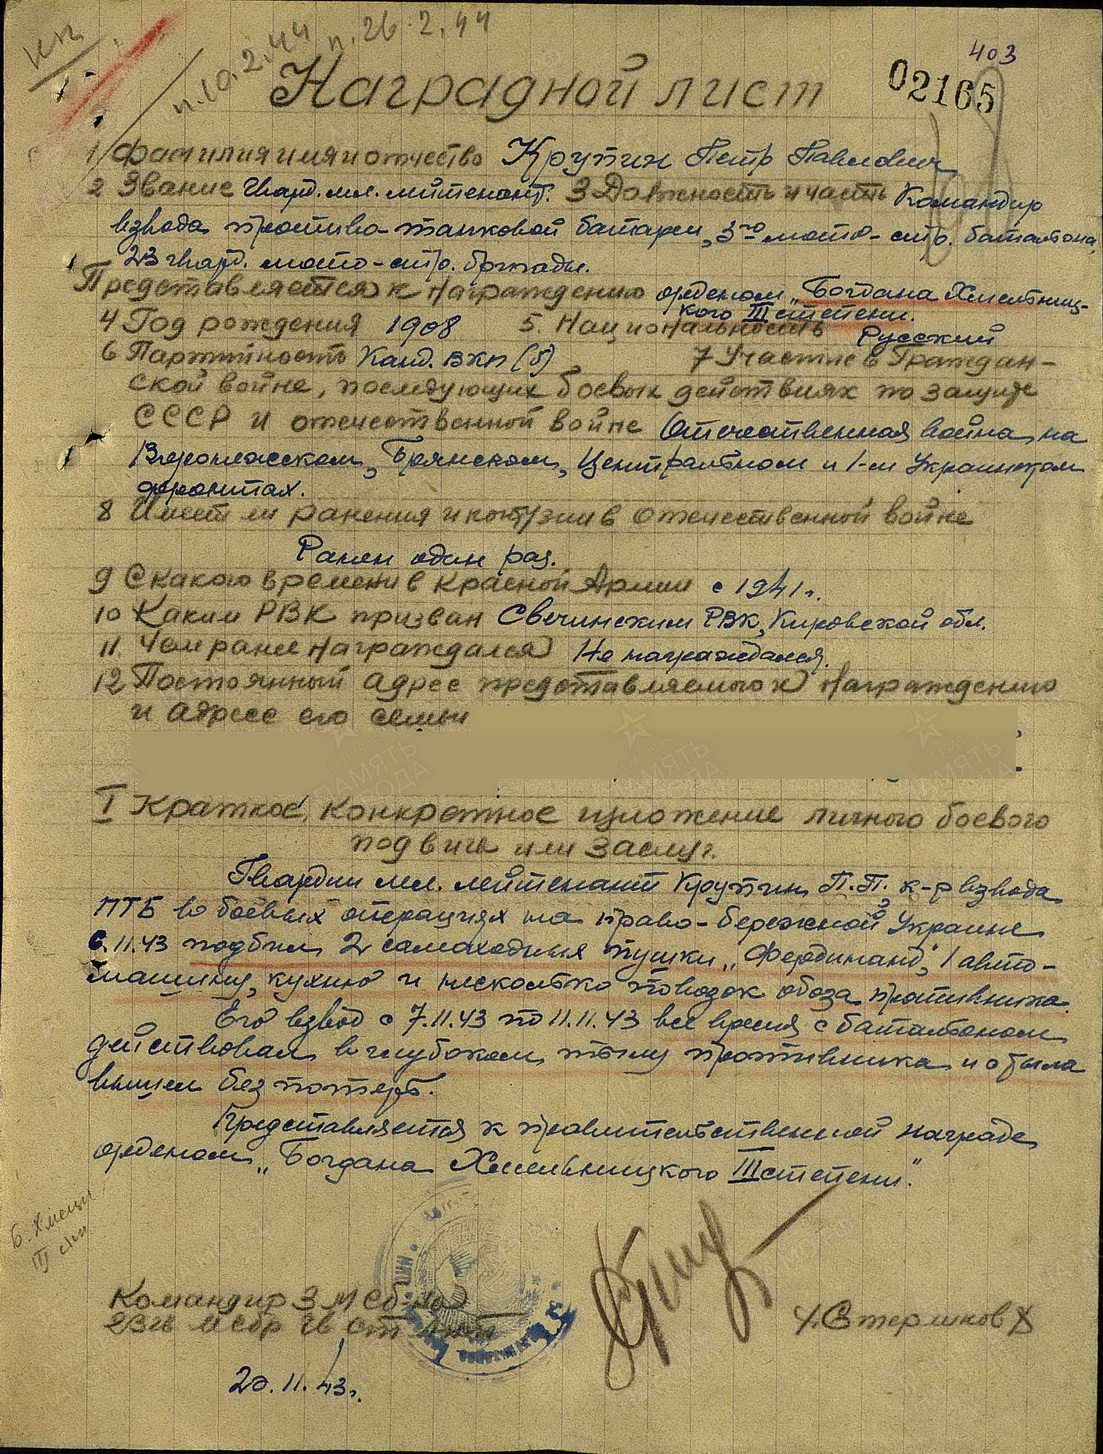 п. 10.2.44 п. 26.2.44
403
02165
Наградной лист
1 Фамилия имя и отчество Крупин Петр Павлович
2 Звание Гвард. мл. лейтенант. 3 Должность и часть Командир
взвода противо-танковой батареи, 3го мото-стр. батальона,
23 гвард. мото-стр. бригады.
Представляется к награждению орденом „Богдана Хмельниц-
кого III степени.
4 Год рождения 1908 5. Национальность Русский
6 Партийность Канд. ВКП(б) 7 Участие в Граждан-
ской войне, последующих боевых действиях по защите
СССР и отечественной войне Отечественная война на
Воронежском, Брянском, Центральном и 1-м Украинском
фронтах.
8 Имеет ли ранения и контузии в отечественной войне
Ранен один раз.
9 С какого времени в Красной Армии с 1941 г.
10 Каким РВК призван Свечинским РВК, Кировской обл.
11. Чем ранее награждался Не награждался.
12 Постоянный адрес представляемого к награждению
и адрес его семьи
I Краткое, конкретное изложение личного боевого
подвига или заслуг.
Гвардии мл. лейтенант Крупин П.П., к-р взвода
ПТБ в боевых операциях на право-бережной Украине
6.11.43 подбил 2 самоходных пушки „Фердинанд", 1 авто-
машину, кухню и несколько повозок обоза противника.
Его взвод с 7.11.43 по 11.11.43 все время с батальоном
действовал в глубоком тылу противника и с тыла
вышел без потерь.
Представляется к правительственной награде
орденом „Богдана Хмельницкого III степени".
Б. Хмельн
III степ
Командир 3 МСб-на
23 гв МСбр Гв Ст л-нт
20.11.43 г.